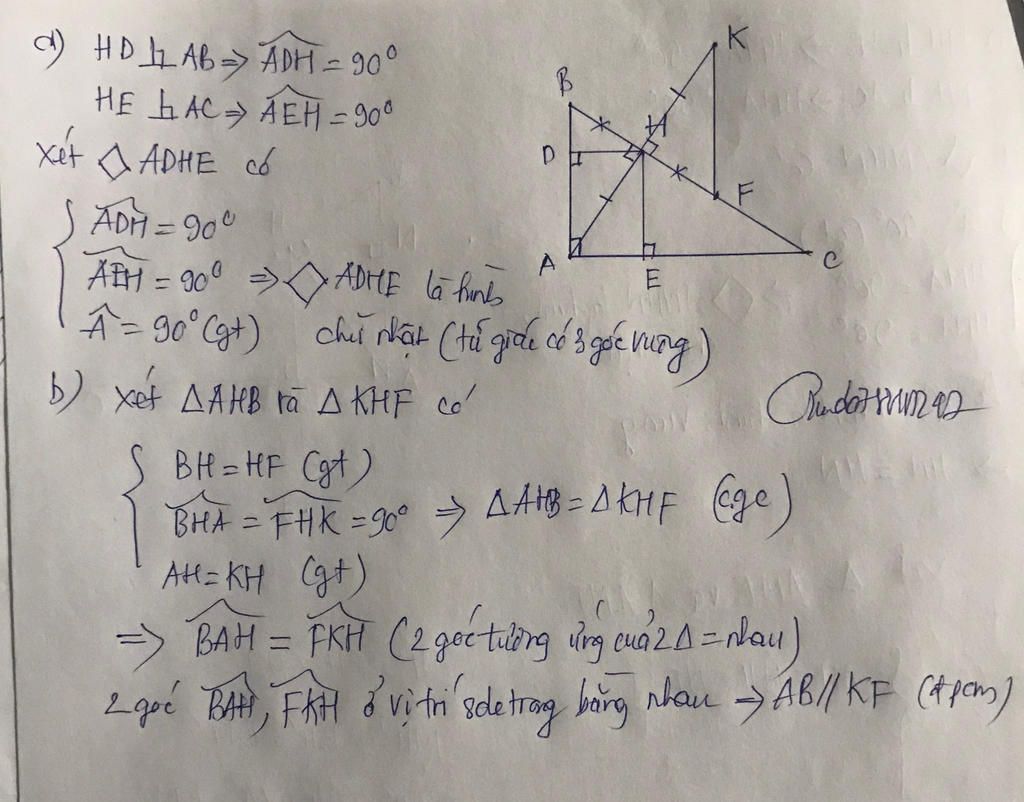 a) HD ⊥ AB ⇒ \widehat{ADH} = 90°
HE ⊥ AC ⇒ \widehat{AEH} = 90°
Xét ◇ ADHE có
\widehat{ADH} = 90°
\widehat{AEH} = 90° ⇒ ◇ ADHE là hình
\widehat{A} = 90° (gt) chữ nhật (tứ giác có 3 góc vuông)
b) Xét ΔAHB và ΔKHF có
BH = HF (gt)
\widehat{BHA} = \widehat{FHK} = 90° ⇒ ΔAHB = ΔKHF (cgc)
AH = KH (gt)
⇒ \widehat{BAH} = \widehat{FKH} (2 góc tương ứng của 2 Δ = nhau)
2 góc \widehat{BAH}, \widehat{FKH} ở vị trí sole trong bằng nhau ⇒ AB // KF (đpcm)
K
B
H
D
F
A
E
C